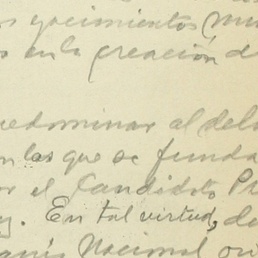 os yacimientos (mu
s en la creación d
edominar al deb
n las que se funda
or el Candidato Pr
y. En tal virtud, de
Nacional